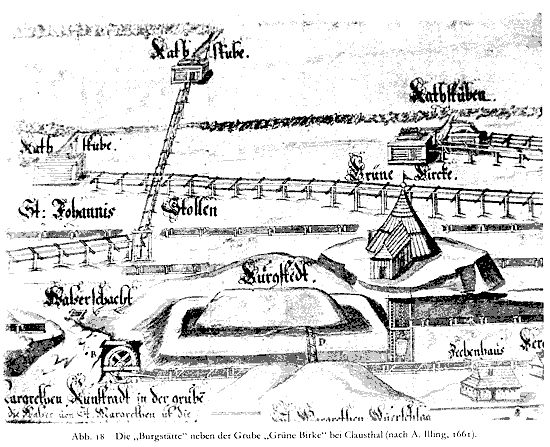 Kath stube.
Kathstuben
Kath stube.
Grüne Bircke.
St: Johannis Stollen
Burgstedt.
Kaiserschacht
Zechenhaus
B
D
Margrethen Kunstradt in der grube
St. Margrethen
Abb. 18 Die „Burgstätte“ neben der Grube „Grüne Birke“ bei Clausthal (nach A. Illing, 1661).